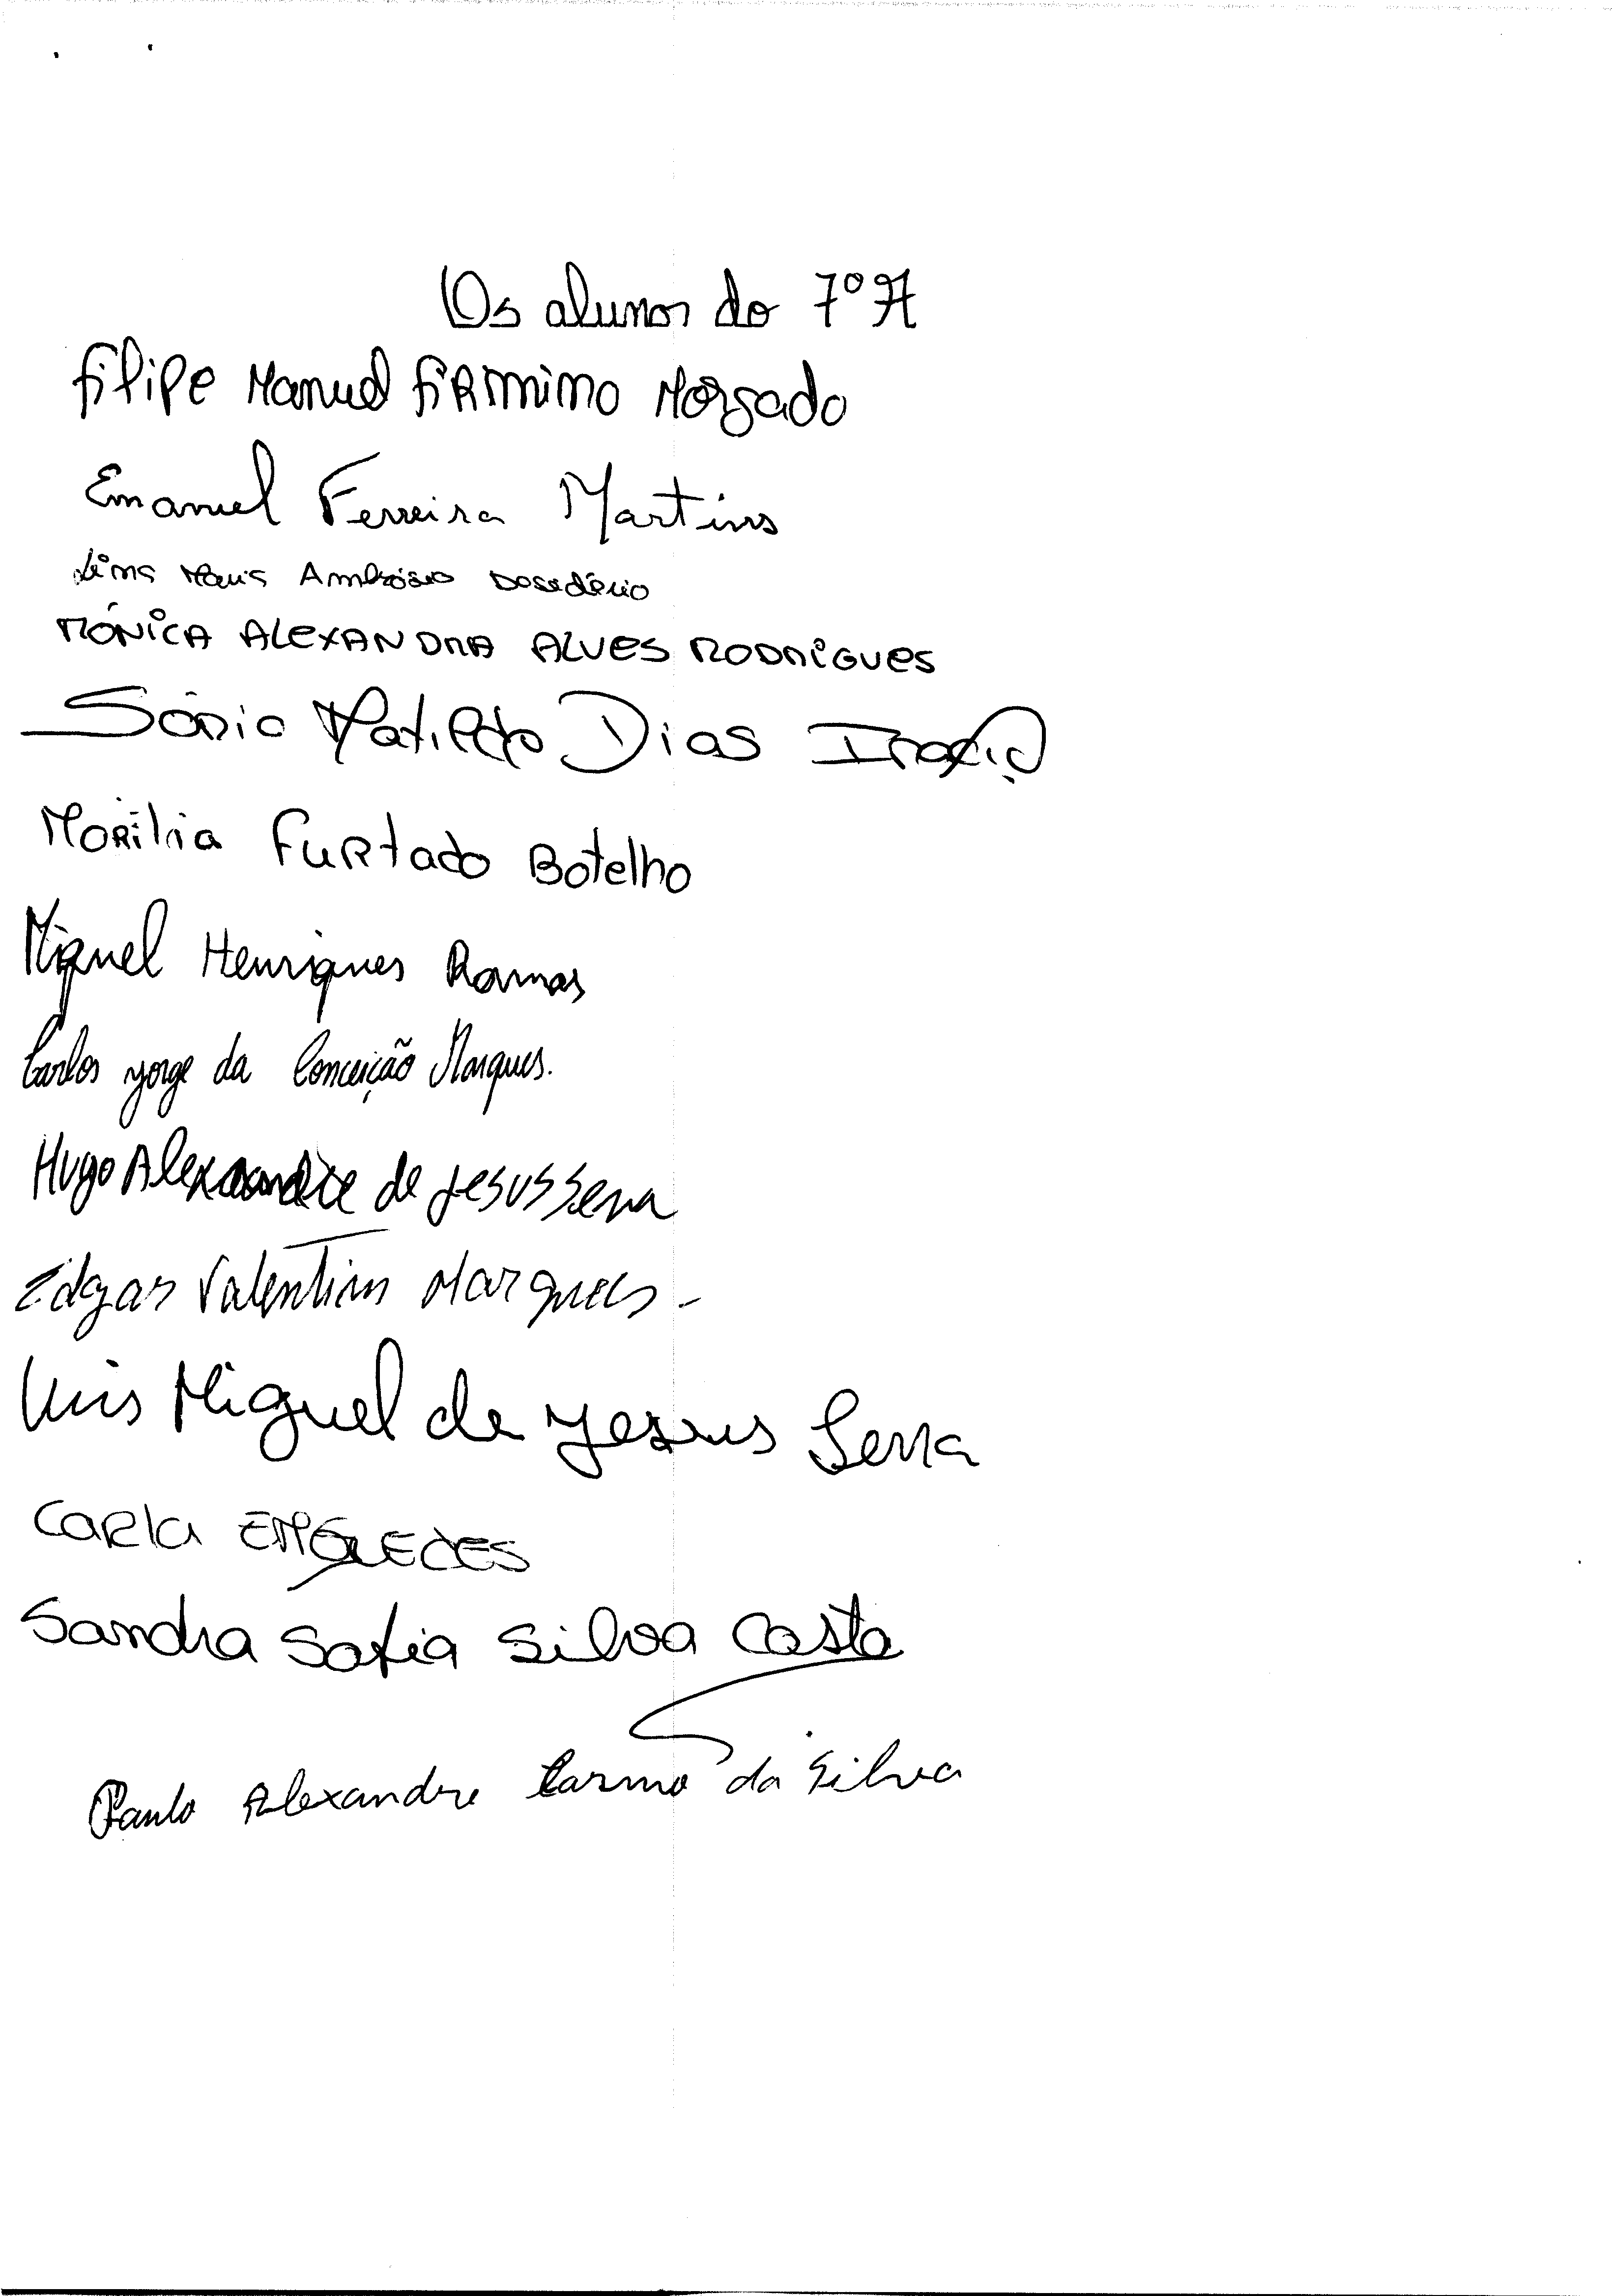 Os alunos do 7º A
Filipe Manuel Firmino Morgado
Emanuel Ferreira Martins
Ambrósio
MÓNICA ALEXANDRA ALVES RODRIGUES
Sónia Matilde Dias Inácio
Marília Furtado Botelho
Miguel Henriques Ramos
Carlos Jorge da Conceição Marques.
Hugo Alexandre de Jesus Serra
Edgar Valentim Marques -
Luis Miguel de Jesus Serra
Carla
Sandra Sofia Silva Costa
Paulo Alexandre Carmo da Silva